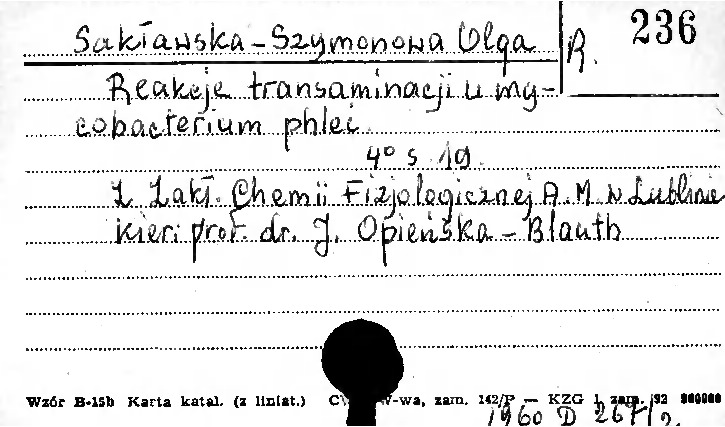 Sakławska-Szymonowa Olga
R. 236
Reakcje transaminacji u my-
cobacterium phlei
4° s. 19.
Z Zakł. Chemii Fizjologicznej A.M. w Lublinie
kier. prof. dr. J. Opieńska-Blauth
Wzór B-15b Karta katal. (z liniat.) W-wa, zam. 142/P — KZG 1 zam.
1960 D 267/2.